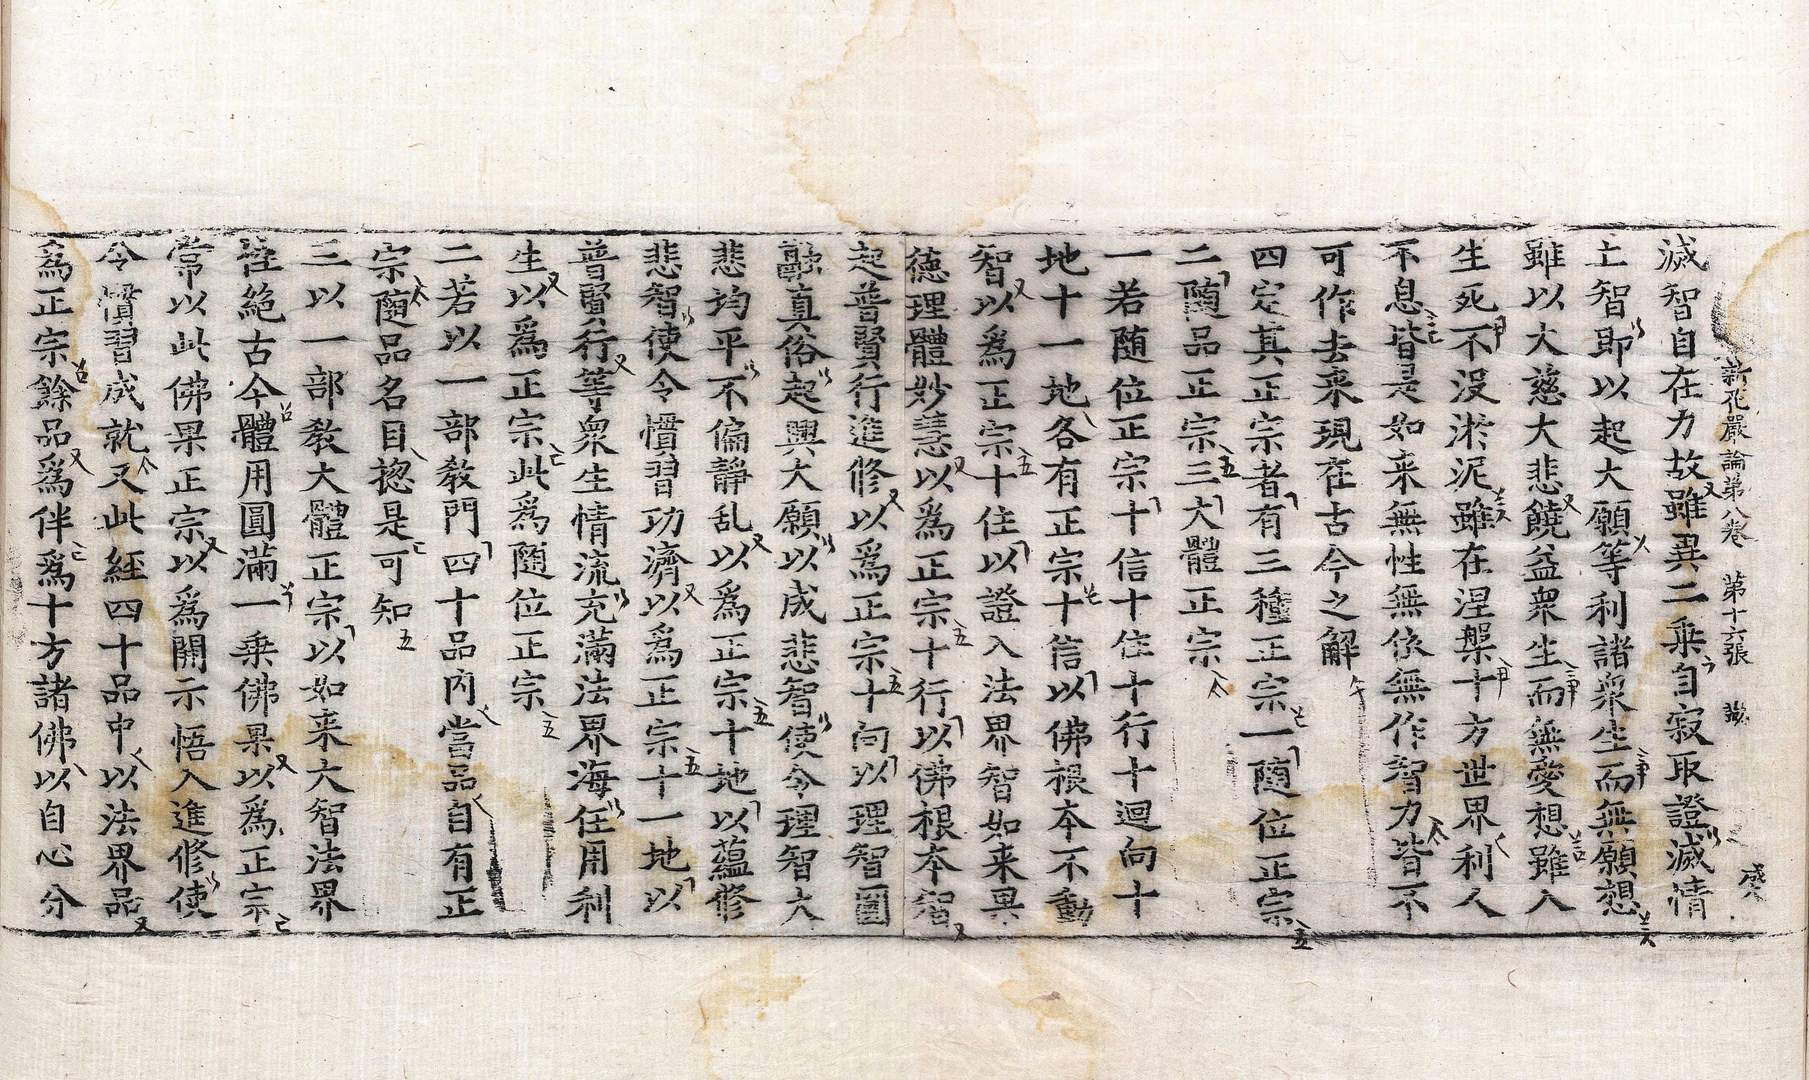 新花嚴論第八卷 第十六張
滅智自在力故雖異二乘自寂取證滅情
上智即以起大願等利諸衆生而無願想
雖以大慈大悲饒益衆生而無愛想雖入
生死不没淤泥雖在涅槃十方世界利人
不息皆是如来無性無依無作智力皆不
可作去来現在古今之解
四定其正宗者有三種正宗一随位正宗
二随品正宗三大體正宗
一若随位正宗十信十住十行十迴向十
地十一地各有正宗十信以佛根本不動
智以為正宗十住以證入法界智如来異
德理體妙慧以為正宗十行以佛根本智
起普賢行進修以為正宗十向以理智圓
融真俗起興大願以成悲智使令理智大
悲均平不偏静乱以為正宗十地以蘊修
悲智使令慣習功濟以為正宗十一地以
普賢行等衆生情流充滿法界海任用利
生以為正宗此為随位正宗
二若以一部教門四十品内當品自有正
宗随品名目揔是可知
三以一部教大體正宗以如来大智法界
性絶古今體用圓滿一乘佛果以為正宗
常以此佛果正宗以為開示悟入進修使
令慣習成就又此經四十品中以法界品
為正宗餘品為伴為十方諸佛以自心分